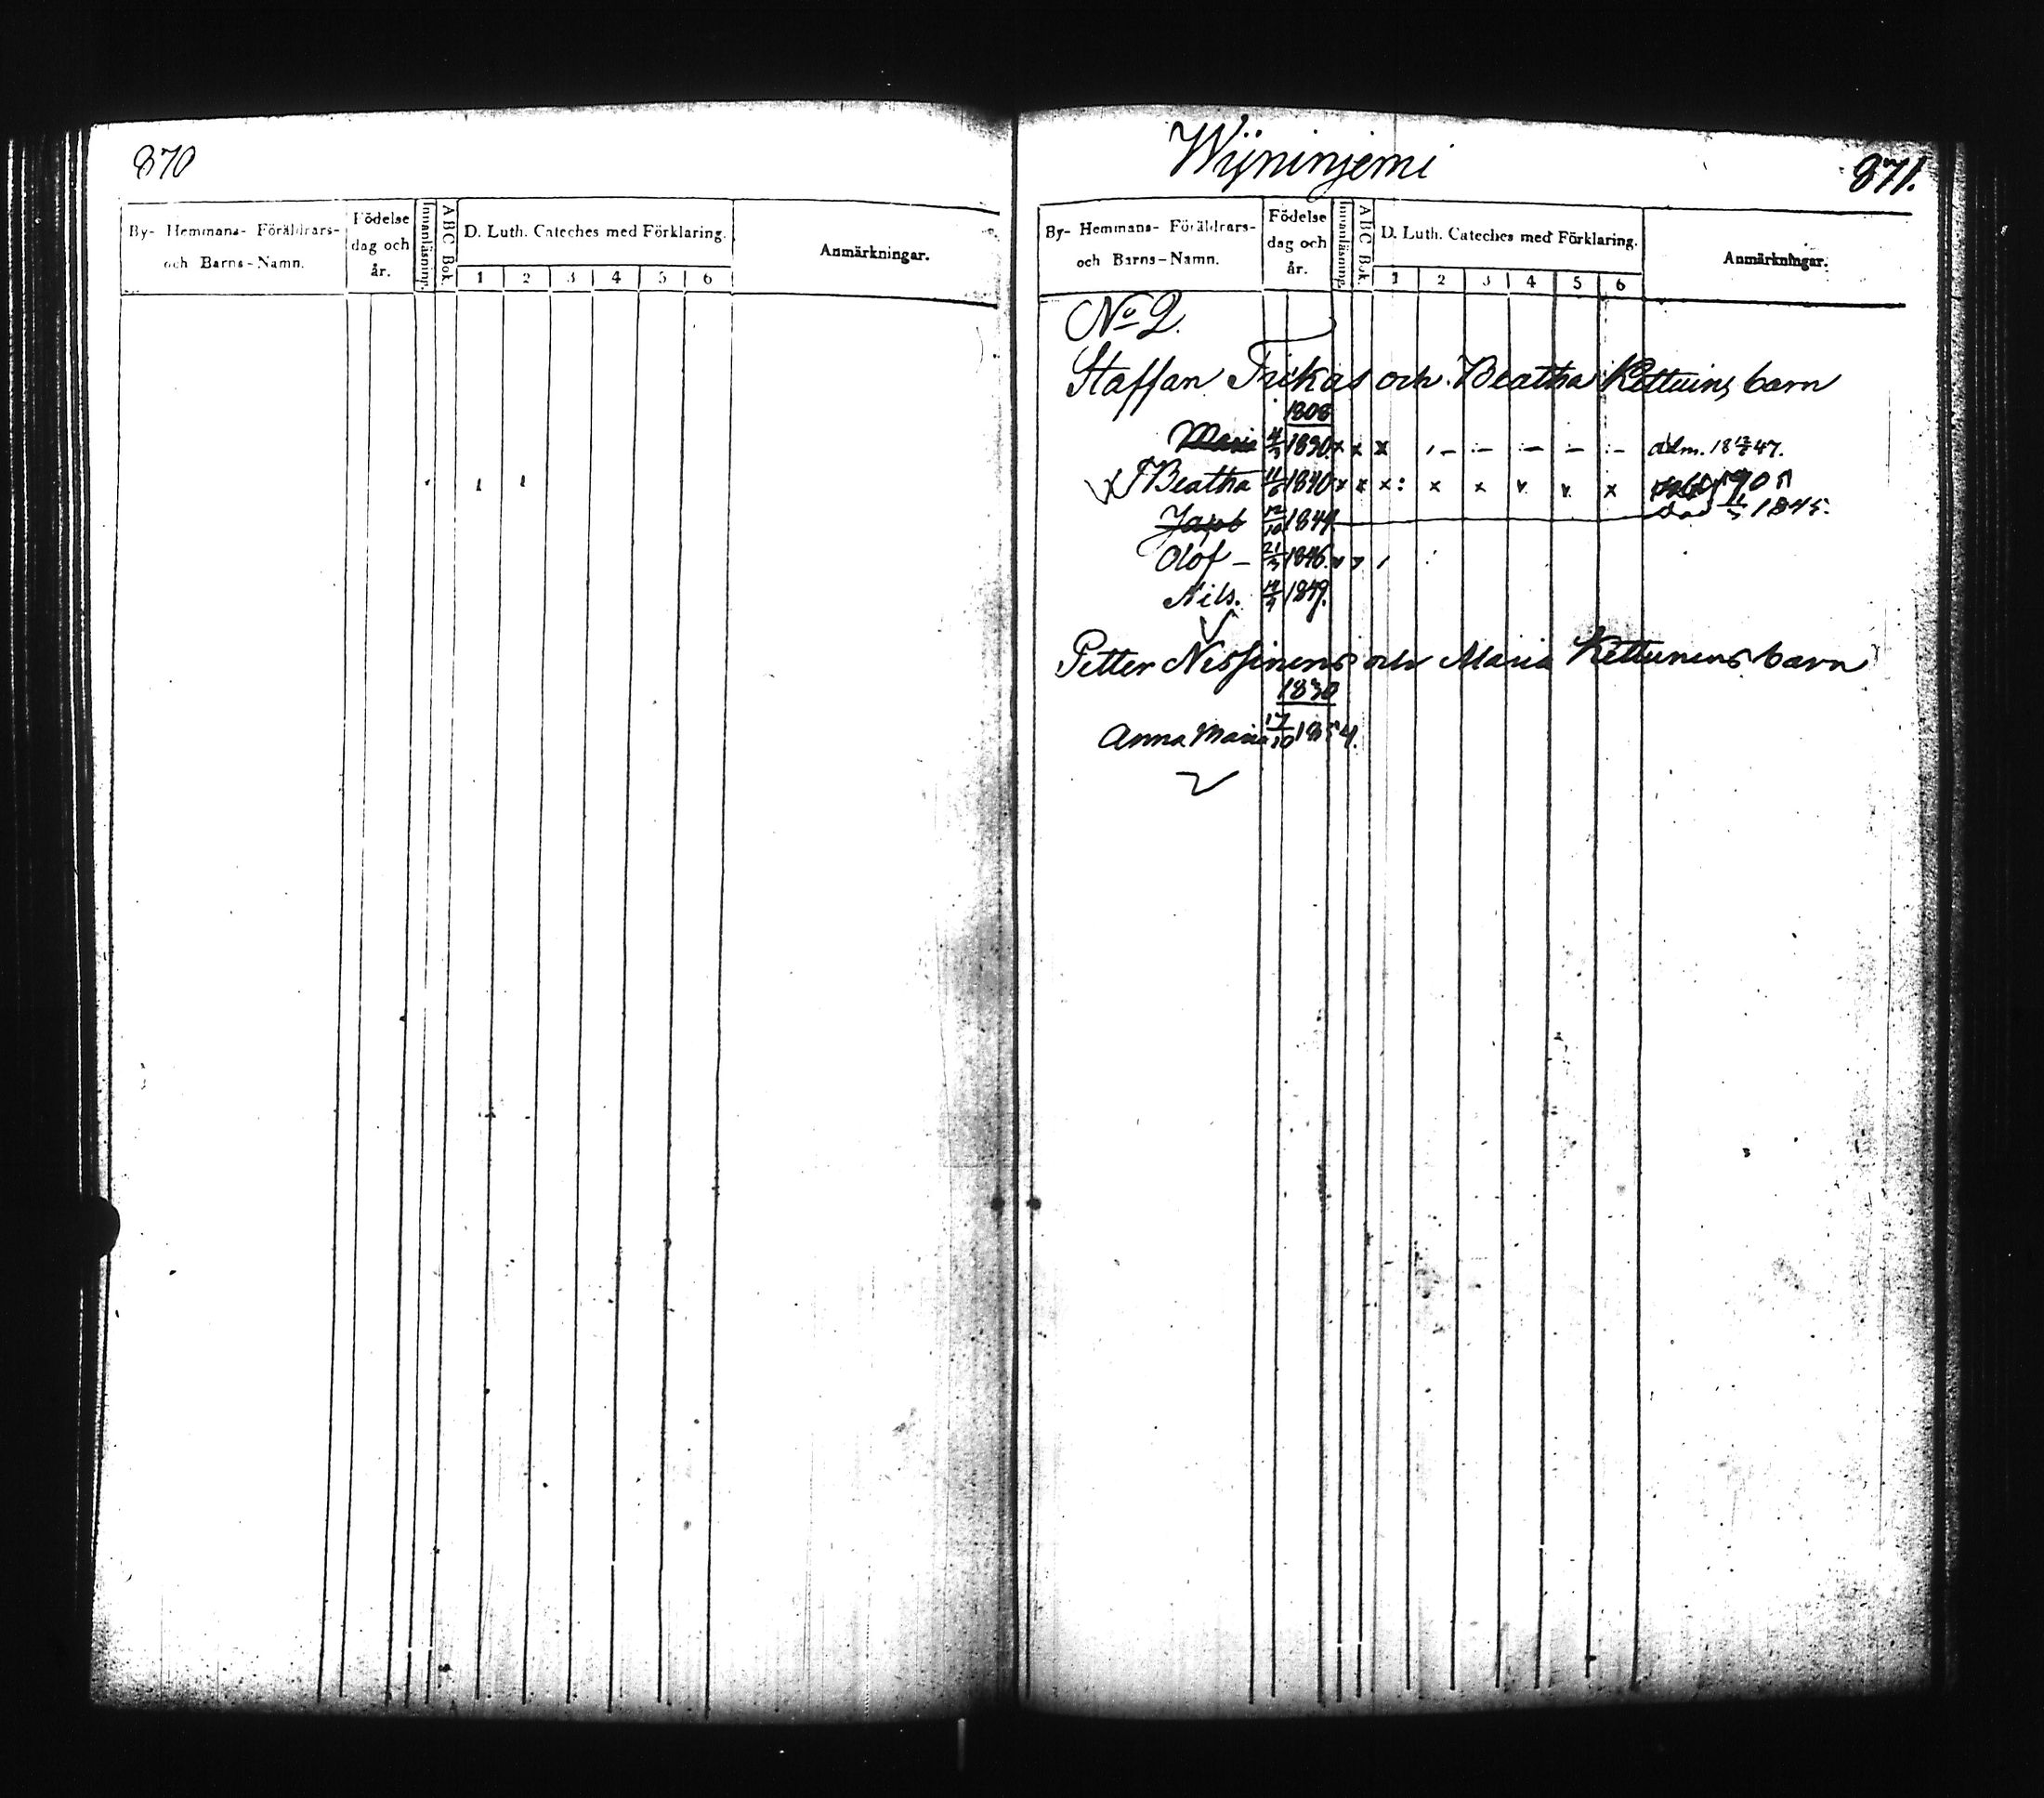 870
By- Hemmans- Föräldrars- och Barns-Namn.
Födelse dag och år.
Innanläsning.
ABC Bok.
D. Luth. Cateches med Förklaring.
1 2 3 4 5 6
Anmärkningar.
Wijninjemi
871.
By- Hemmans- Föräldrars- och Barns-Namn.
Födelse dag och år.
Innanläsning.
ABC Bok.
D. Luth. Cateches med Förklaring.
1 2 3 4 5 6
Anmärkningar.
No 2.
Staffan och Beatha barn
1808
Maria 1830 x x x adm. 47.
Beatha 11/6 1840 x x x: x x x
Jacob 12/10 1844 1845.
Olof - 21/3 1846.
Nils. 1849.
Petter Nissinens och Maria Kettunens barn
1830
Anna Maria 17/10 1854.